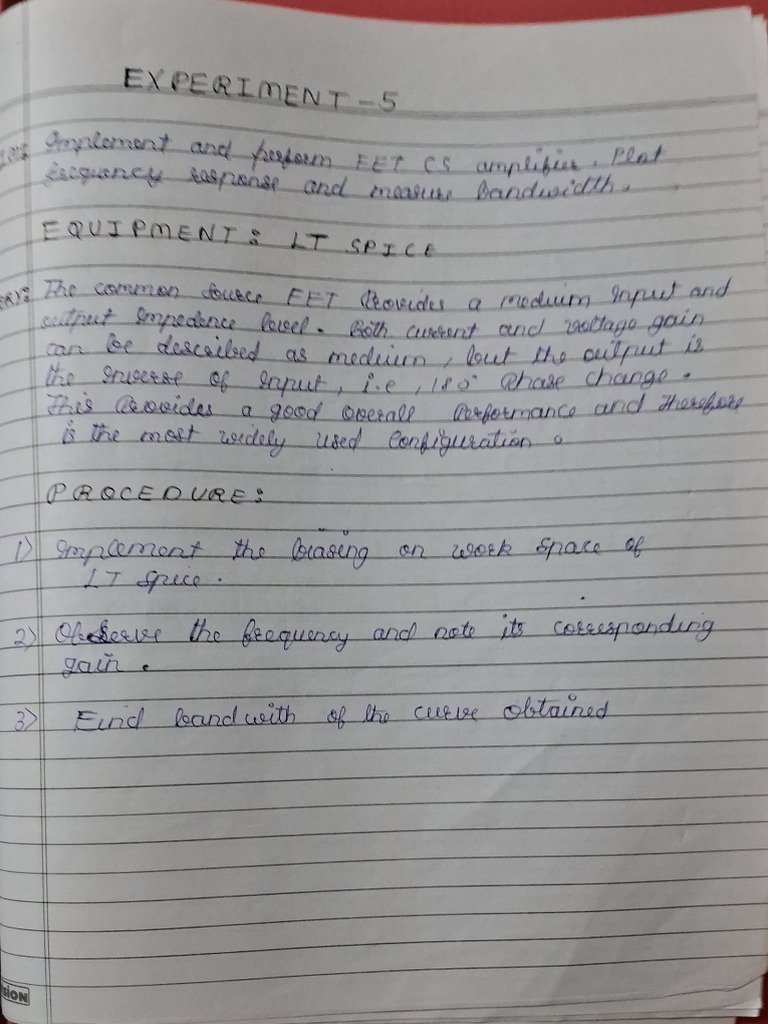 EXPERIMENT - 5
Implement and perform FET CS amplifier. Plot
frequency response and measure Bandwidth.
EQUIPMENT: LT SPICE
The common source FET Provides a medium input and
output impedence level. Both current and voltage gain
can be described as medium, but the output is
the inverse of input, i.e, 180° Phase change.
This Provides a good overall Performance and therefore
is the most widely used Configuration.
PROCEDURE:
1) Implement the biasing on work space of
LT Spice.
2) Observe the frequency and note its corresponding
gain.
3) Find bandwith of the curve obtained